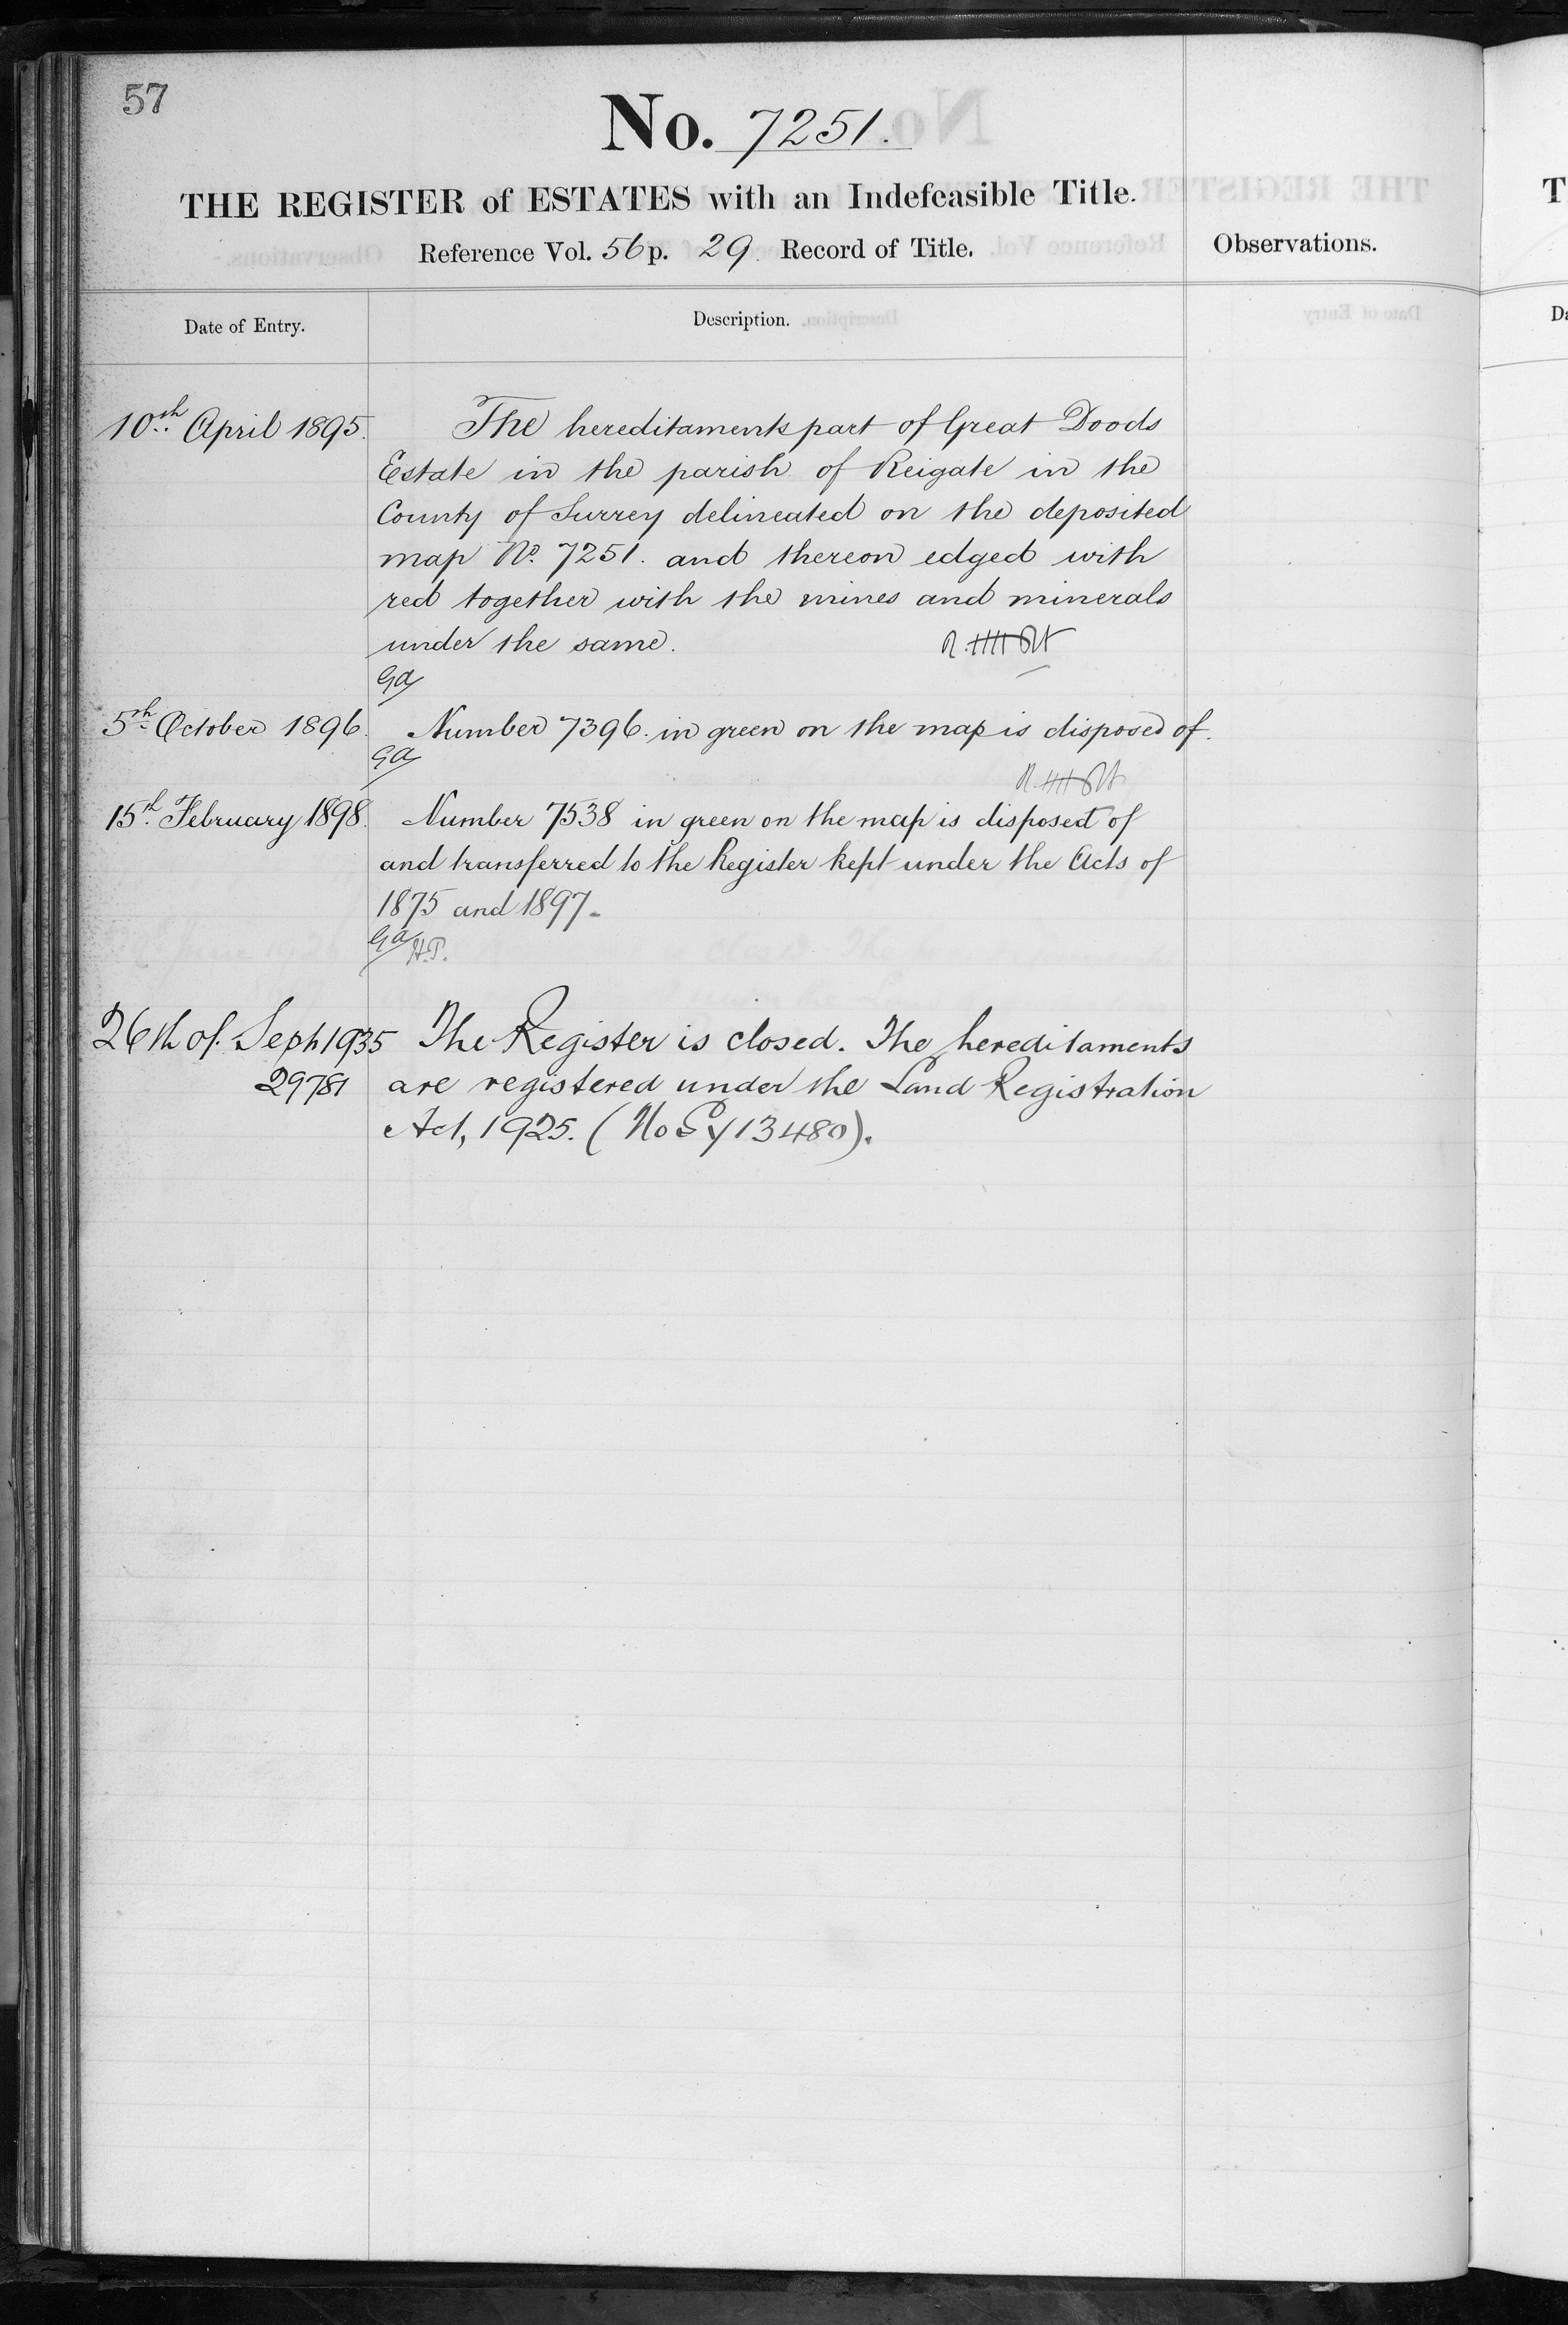 57
No. 7251.
THE REGISTER of ESTATES with an Indefeasible Title.
Reference Vol. 56 p. 29. Record of Title.
Observations.
Date of Entry.
Description.
10th April 1895.
The hereditaments part of Great Doods
Estate in the parish of Reigate in the
County of Surrey delineated on the deposited
map No. 7251. and thereon edged with
red together with the mines and minerals
under the same.
Ga
5th October 1896. Number 7396. in green on the map is disposed of.
Ga
15th February 1898. Number 7538 in green on the map is disposed of
and transferred to the Register kept under the Acts of
1875 and 1897.
Ga
H.P.
26th of Sept 1935 The Register is closed. The hereditaments
29781 are registered under the Land Registration
Act, 1925. (No Sy 13480).